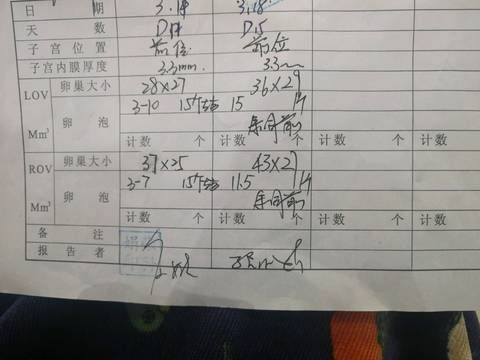 日 期 3.18
天 数 D15
子宫位置 前位 前位
子宫内膜厚度 3.3mm 3.3mm
LOV 卵巢大小 28×27 36×29
Mm³ 卵泡 3-10 15个 15 1个
余同前
计数 个 计数 个 计数 个 计数 个
ROV 卵巢大小 37×25 43×27
Mm³ 卵泡 3-7 15个 11.5 1个
余同前
计数 个 计数 个 计数 个 计数 个
备 注
报告者